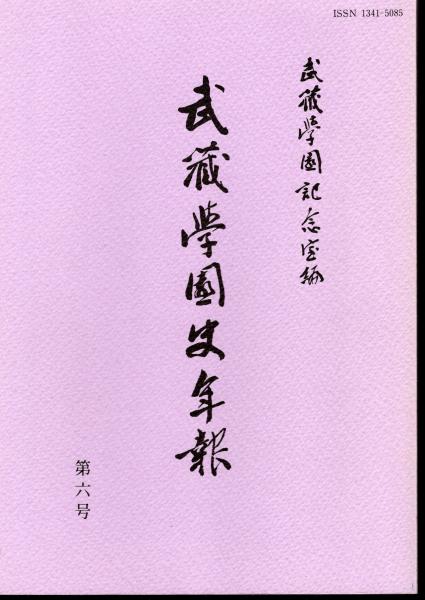 ISSN 1341-5085
武蔵學園記念室編
武蔵學園史年報
第六号